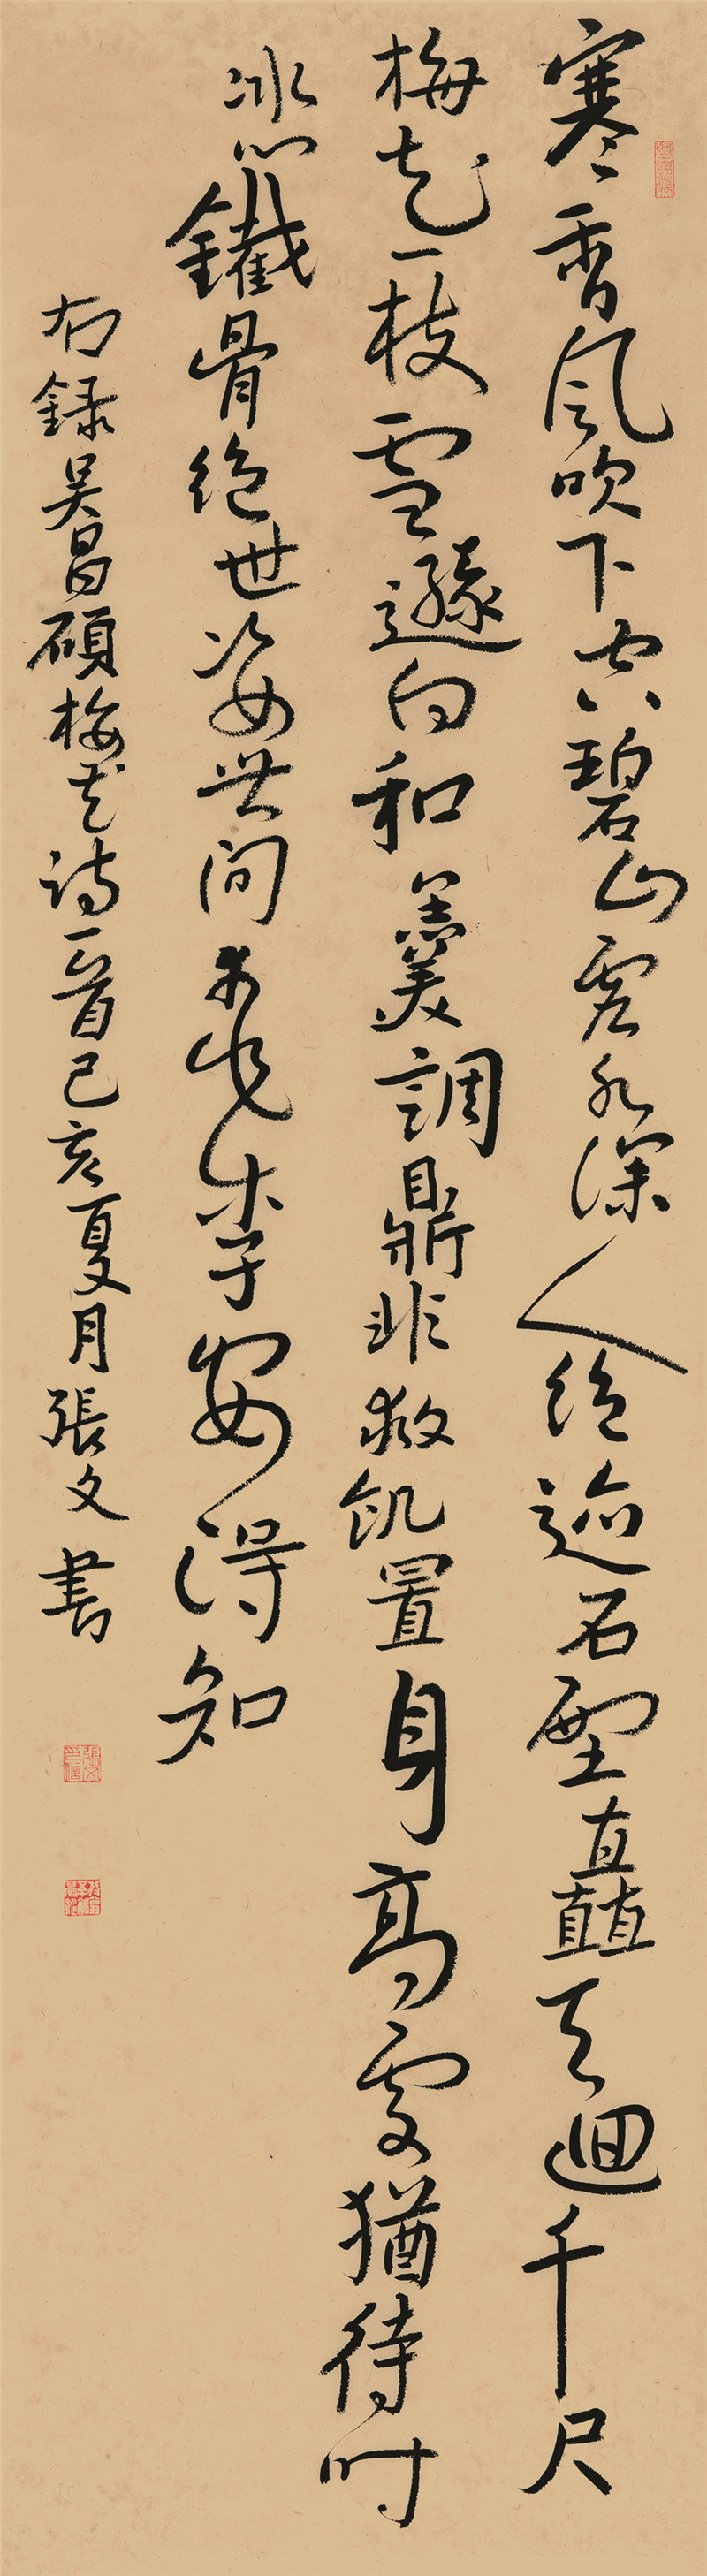 寒香風吹下空碧山虛水深人絕迹石壁矗天迴千尺
梅花一枝雪白和羹調鼎非救飢置身高處猶待時
冰心鐵骨絕世姿世間桃李安得知
右錄吳昌碩梅花詩一首己亥夏月張文書